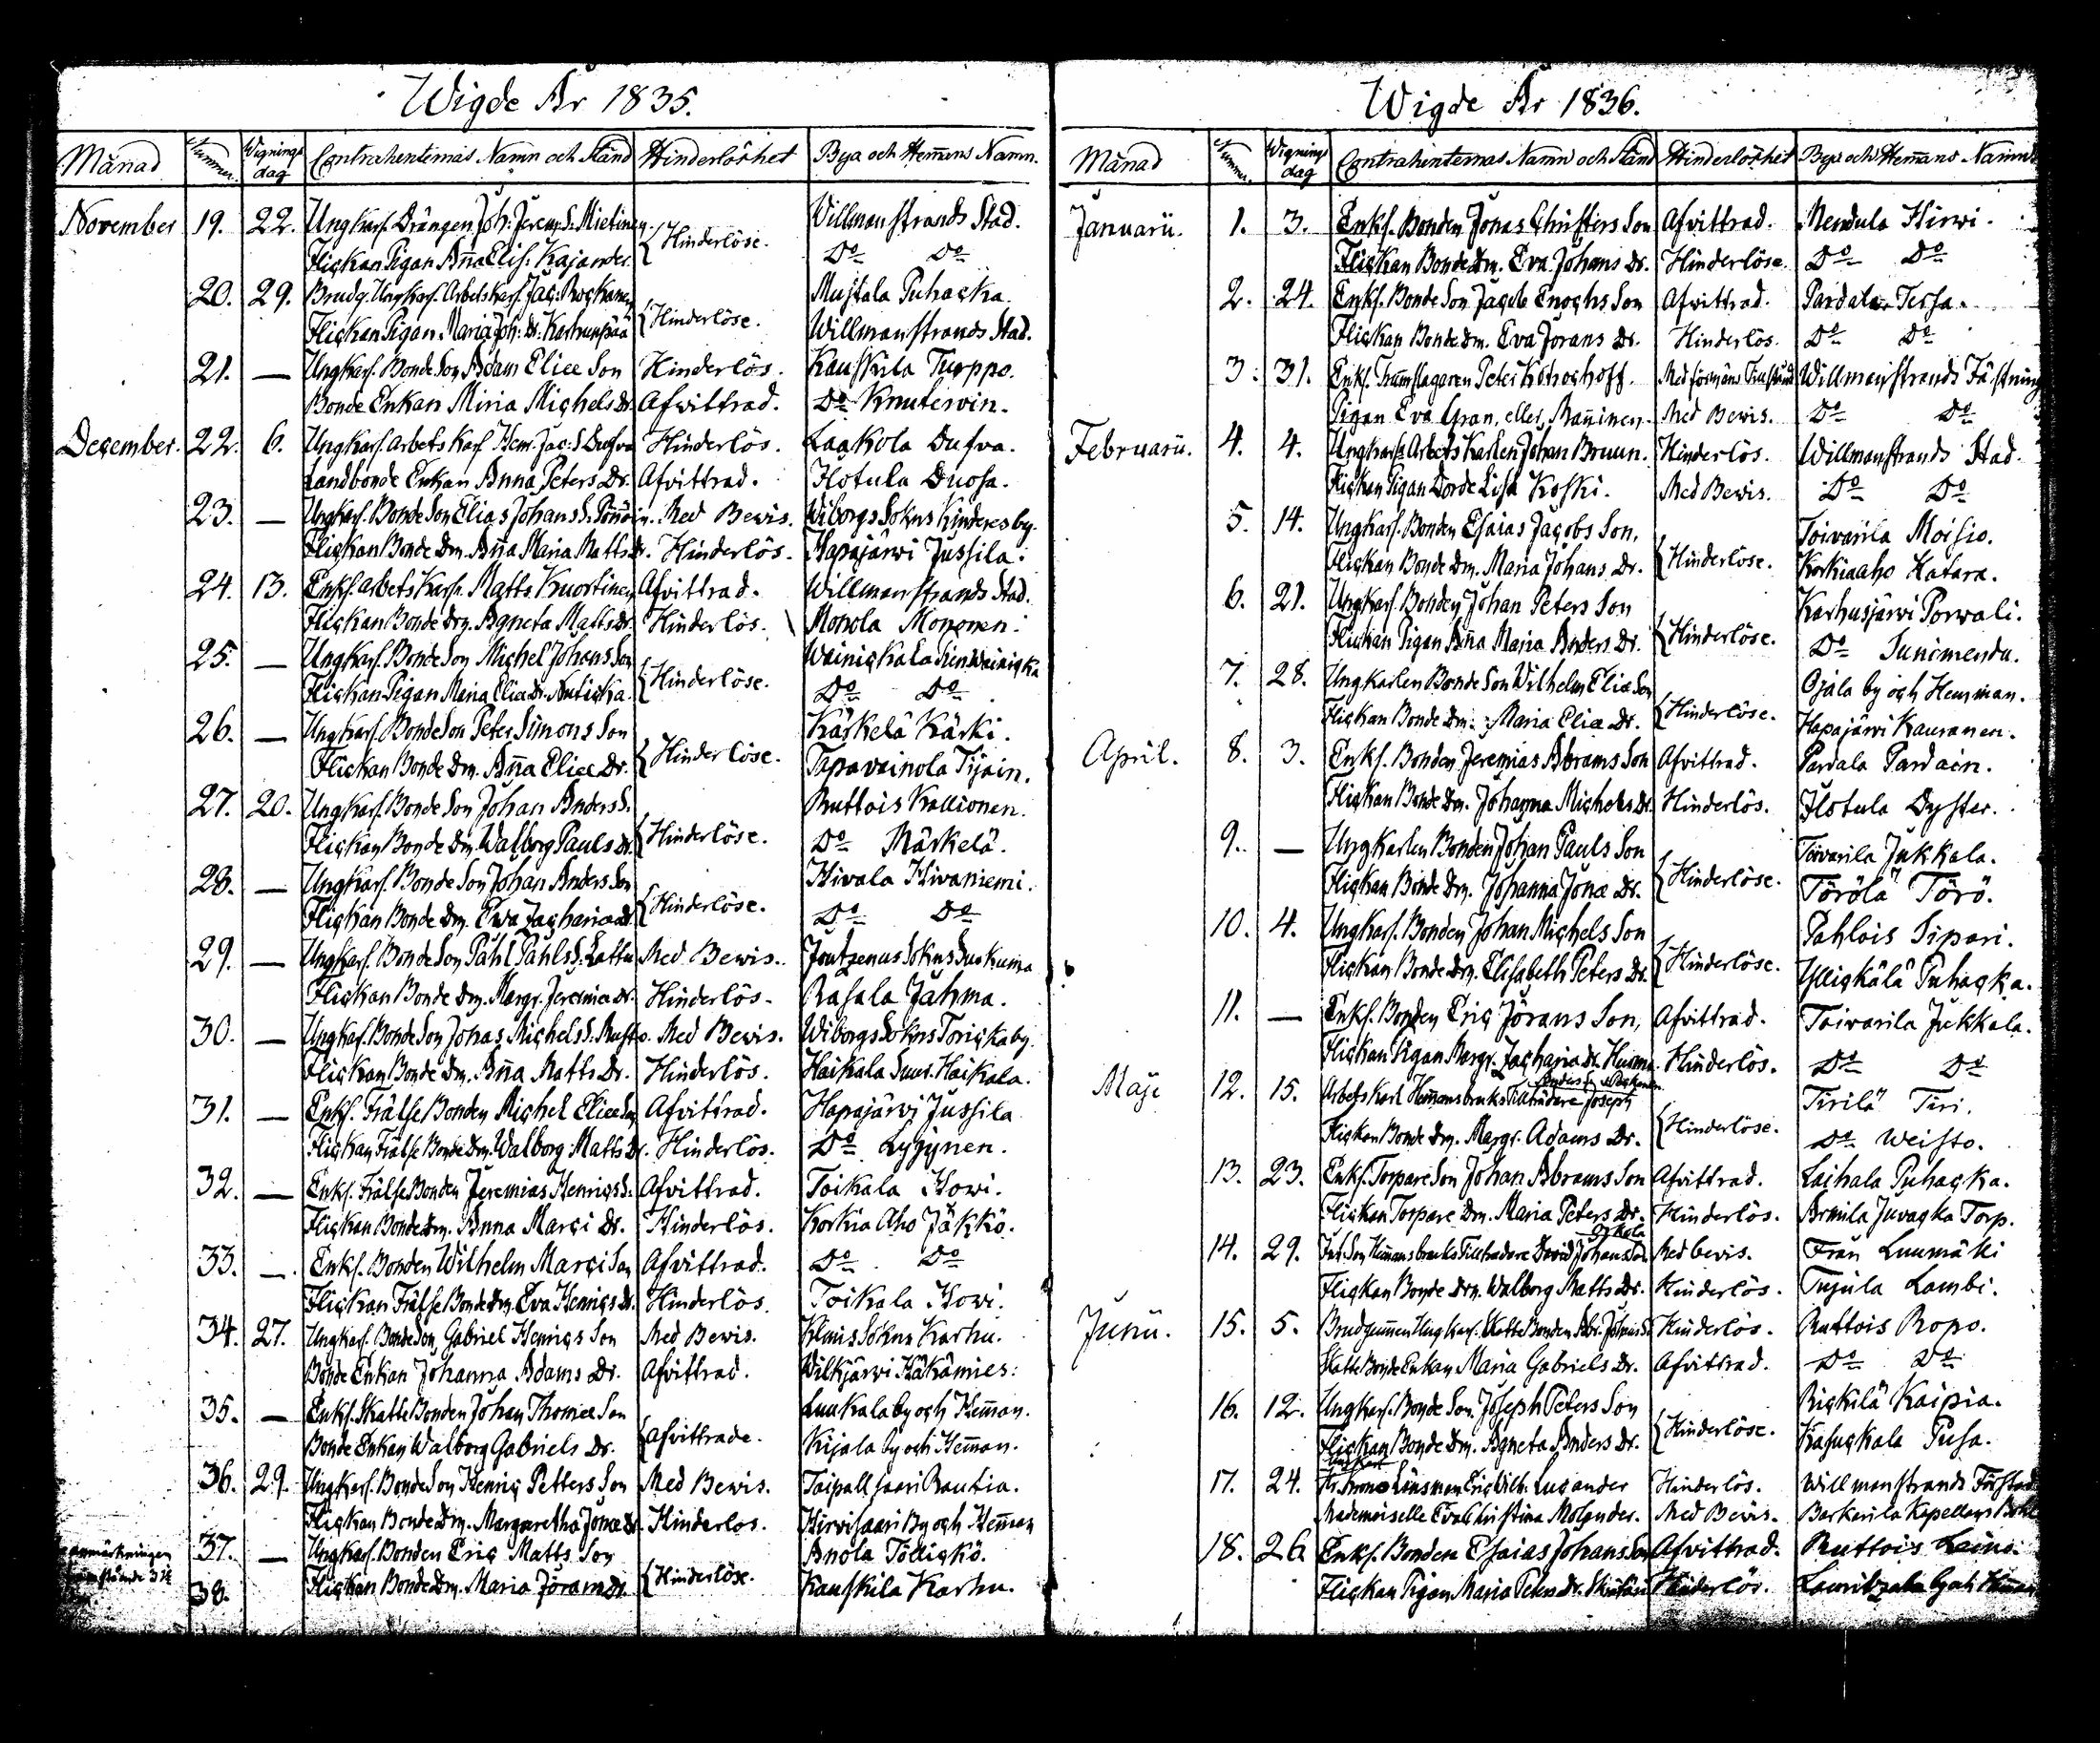 Wigde År 1835.
Månad Nummer. Wignings dag Contrahenternas Namn och Stånd Hinderlöshet Bya och Hemans Namn.
November 19. 22. Ungkarl. Drängen Joh: Jerem. S. Mietinen. Willmanstrands Stad.
Flickan Pigan Aña Elis: Kajander. { Hinderlöse. Do Do
20. 29. Brudg. Ungkarl. Arbetskarl. Jac: Kockanen Mustala Puhacka.
Flickan Pigan. Maria Joh: Dr. Karhunpää { Hinderlöse. Willmanstrands Stad.
21. — Ungkarl. Bonde Son Adam Eliæ Son Hinderlös. Kauskila Turppo.
Bonde Enkan Miria Michels Dr. Afvittrad. Do Knutervin.
December. 22. 6. Ungkarl arbets Karl Hem. Jac: S. Dufva Hinderlös. Laakola Dufva.
Landbonde Enkan Anna Peters Dr. Afvittrad. Hotula Duosa.
23. — Ungkarl. Bonde Son Elias Johans S. Med Bewis. Wiborgs Sokns Kinderes by.
Flickan Bonde Dm. Aña Maria Matts Dr. Hinderlös. Hapajärwi Jussila.
24. 13. Enkl. arbets Karl. Matts Kuortinen Afvittrad. Willmanstrands Stad.
Flickan Bonde Dm. Agneta Matts Dr. Hinderlös. Monola Mononen.
25. — Ungkarl. Bonde Son Michel Johans Son Wainickala
Flickan Pigan Maria Eliæ Dr. { Hinderlöse. Do Do
26. — Ungkarl. Bonde Son Peter Simons Son Kärkelä Kärki.
Flickan Bonde Dm. Aña Eliæ Dr. { Hinderlöse. Tapavainola Tijain.
27. 20. Ungkarl. Bonde Son Johan Anders S. Ruttois Kallionen.
Flickan Bonde Dm. Walborg Pauls Dr. { Hinderlöse. Do Märkelä.
28. — Ungkarl. Bonde Son Johan Anders Son Hivala Hivaniemi.
Flickan Bonde Dm. Ewa Zachariæ Dr. { Hinderlöse. Do Do
29. — Ungkarl. Bonde Son Påhl Påhls S. Lattu Med Bewis. Joutzenus Sokns Suokuma
Flickan Bonde Dm. Margr. Jeremiæ Dr. Hinderlös. Rasala Jahma.
30. — Ungkarl. Bonde Son Johas Michels S. Med Bewis. Wiborgs Sokns Torickaby.
Flickan Bonde Dm. Aña Matts Dr. Hinderlös. Haikala Suur. Haikala.
31. — Enkl. Frälse Bonden Michel Eliæ Son Afvittrad. Hapajärwi Jussila
Flickan Frälse Bonde Dm. Walborg Matts Dr. Hinderlös. Do Lyijynen.
32. — Enkl. Frälse Bonden Jeremias Henrics S. Afvittrad. Toikala Howi.
Flickan Bonde Dm. Anna Marci Dr. Hinderlös. Korkia Aho Jäkkö.
33. — Enkl. Bonden Wilhelm Marci Son Afvittrad. Do Do
Flickan Frälse Bonde Dm. Eva Henrics Dr. Hinderlös. Toikala Howi.
34. 27. Ungkarl. Bonde Son Gabriel Henrics Son Med Bewis. Klemis Sokns Karhu.
Bonde Enkan Johanna Adams Dr. Afvittrad. Wilkjärwi Häkämies:
35. — Enkl. Skatte Bonden Johan Thomæ Son Luukala by och Heman.
Bonde Enkan Walborg Gabriels Dr. { Afvittrade. Kijala by och Heman.
36. 29. Ungkarl. Bonde Son Henric Petters Son Med Bewis. Taipallsaari Rautia.
Flickan Bonde Dm. Margaretha Jonæ Dr. Hinderlos. Hirvisaari By och Heman
37. — Ungkarl. Bonden Eric Matts Son Anola Töllickö.
38. Flickan Bonde Dm. Maria Jörans Dr. { Hinderlöse. Kauskila Karhu.
Wigde År 1836.
Månad Nummer. Wignings dag Contrahenternas Namn och Stånd Hinderlöshet Bya och Hemans Namn
Januarii. 1. 3. Enkl. Bonden Jonas Christers Son Afvittrad. Mendula Hirwi.
Flickan Bonde Dm. Eva Johans Dr. Hinderlöse. Do Do
2. 24. Enkl. Bonde Son Jacob Enochs Son Afvittrad. Pardala Tersa.
Flickan Bonde Dm. Eva Jörans Dr. Hinderlös. Do Do
3. 31. Enkl. Trumslagaren Peter Med förmäns Tillstånd Willmanstrands Fästning
Pigan Eva Gran, eller, Ranninen. Med Bewis. Do Do
Februarii. 4. 4. Ungkarls Arbets Karlen Johan Bruun. Hinderlös. Willmanstrands Stad.
Flickan Pigan Dorde Lisa Koski. Med Bewis. Do Do
5. 14. Ungkarl. Bonden Esaias Jacobs Son, Toivarila Moisio.
Flickan Bonde Dm. Maria Johans Dr. { Hinderlöse. Korkiaaho Hatara.
6. 21. Ungkarl. Bonden Johan Peters Son Karhusjärwi Porwali.
Flickan Pigan Aña Maria Anders Dr. { Hinderlöse. Do Sunimendu.
7. 28. Ungkarlen Bonde Son Wilhelm Eliæ Son Ojala by och Hemman.
Flickan Bonde Dm. Maria Eliæ Dr. { Hinderlöse. Hapajärwi Kauranen.
April. 8. 3. Enkl. Bonden Jeremias Abrams Son Afvittrad. Pardala Pardain.
Flickan Bonde Dm. Johanna Michels Dr. Hinderlös. Hotula Dyster.
9. — Ungkarlen Bonden Johan Pauls Son Toivarila Jukkala.
Flickan Bonde Dm. Johanna Jonæ Dr. { Hinderlöse. Törölä Törö.
10. 4. Ungkarl. Bonden Johan Michels Son Pahlois Sipari.
Flickan Bonde Dm. Elisabeth Peters Dr. { Hinderlöse. Yllickälä Puhacka.
11. — Enkl. Bonden Eric Jörans Son, Afvittrad. Toivarila Jukkala.
Flickan Pigan Margr. Zacharia Dr. Hinderlös. Do Do
Anders S.
Maji 12. 15. Arbets Karl Hemansbruks Tillträdare Joseph Tirilä Tiri.
Flickan Bonde Dm. Margr. Adams Dr. { Hinderlöse. Do Weisto.
13. 23. Enkl. Torpare Son Johan Abrams Son Afvittrad. Laihala Puhacka.
Flickan Torpare Dm. Maria Peters Dr. Hinderlös. Armila Juvacka Torp.
14. 29. Hemansbruks Tillträdare David Johans Son Med bevis. Från Luumäki
Flickan Bonde Dm. Walborg Matts Dr. Hinderlös. Tujula Lambi.
Junii. 15. 5. Brudgummen Ungkarl. Skatte Bonden Abr. Johans S. Hinderlös. Ruttois Ropo.
Skatte Bonde Enkan Maria Gabriels Dr. Afvittrad. Do Do
16. 12. Ungkarl. Bonde Son Joseph Peters Son Rickilä Kaipia.
Flickan Bonde Dm. Agneta Anders Dr. { Hinderlöse. Kasuckala Pusa.
Ungkarl
17. 24. Hr. Krono Länsman Eric Wilh. Lucander Hinderlös. Willmanstrands Förstad
Mademoiselle Eva Christina Molander. Med Bevis. Barkarila Kapellans
18. 26. Enkl. Bonden Esaias Johans Son Afvittrad. Ruttois Leino.
Flickan Pigan Maria Peters Dr. Hinderlös. Lauritzala by och Heman